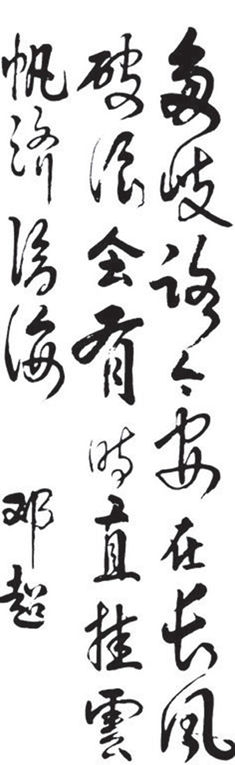 多歧路今安在长风
破浪会有时直挂雲
帆济滄海
邓超